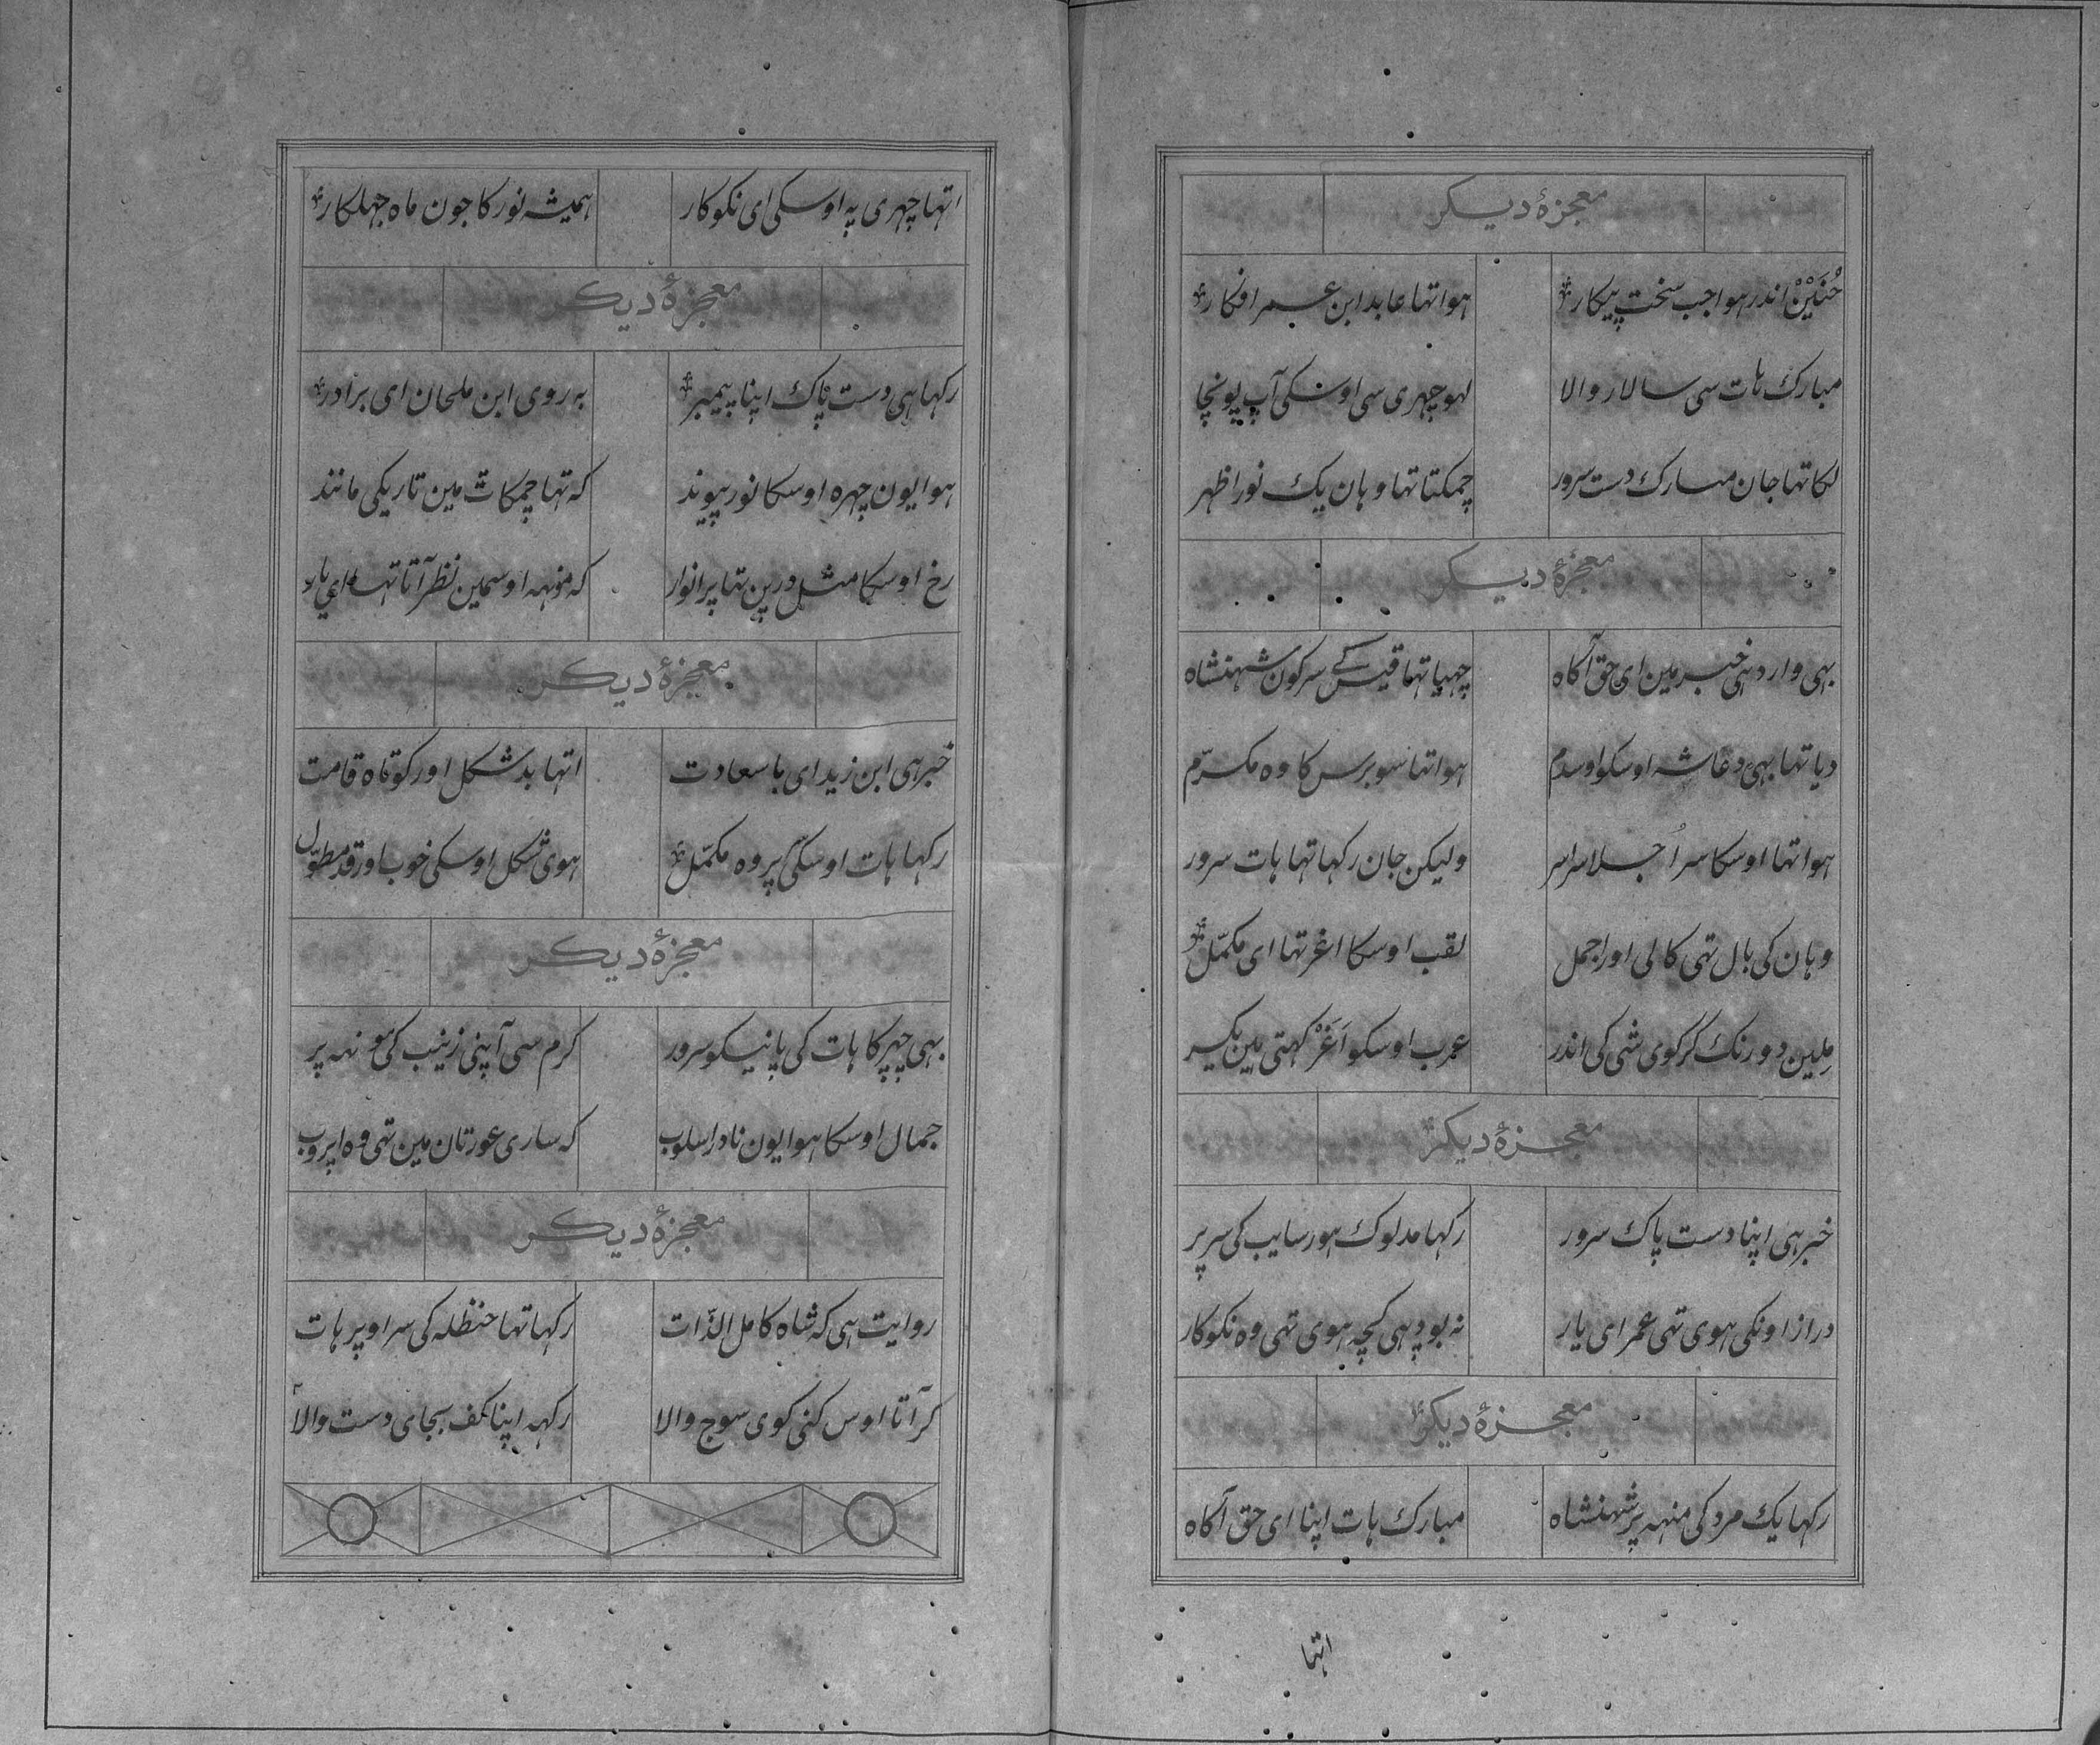 معجزهٔ دیکر
حُنَیْنْ اندر ہوا جب سخت پیکار ہوا تہا عابد ابن عمر افکار
مبارک ہات سی سالار والا لہو چہری سی اوسکی آپ پونچا
لکا تہا جان مبارک دست سرور چمکتا تہا وہان یک نور اظہر
معجزهٔ دیکر
بہی وارد ہی خبر مین ای حق آکاه چہپا تہا قیس کے سر کون شہنشاه
دیا تہا بہی دعا شہ اوسکو اوسدم ہوا تہا سو برس کا وه مکرّم
ہوا تہا اوسکا سر اُجلا سراسر ولیکن جان رکہا تہا ہات سرور
وہان کی بال تہی کالی اور اجمل لقب اوسکا اغر تہا ای مکمّل
مِلین دو رنک کر کوی شی کی اندر عرب اوسکو اَغَرْ کہتی ہین یکسر
معجزهٔ دیکر
خبر ہی اپنا دست پاک سرور رکہا مدلوک ہور سایب کی سر پر
دراز اونکی ہوی تہی عمر ای یار نہ بودہی کچہ ہوی تہی وه نکوکار
معجزهٔ دیکر
رکہا یک مرد کی منہہ پر شہنشاه مبارک ہات اپنا ای حق آکاه
اتہا
اتہا چہری پہ اوسکی ای نکوکار ہمیشہ نور کا جون ماه جہلکار
معجزهٔ دیکر
رکہا ہی دست پاک اپنا پیمبر بہ روی ابن ملحان ای برادر
ہوا یون چہره اوسکا نور پیوند کہ تہا چمکاٹ مین تاریکی مانند
رخ اوسکا مثل درپن تہا پر انوار کہ مونہہ اوسمین نظر آتا تہا ای یار
معجزهٔ دیکر
خبر ہی ابن زید ای با سعادت اتہا بد شکل اور کوتاه قامت
رکہا ہات اوسکی پر وه مکمّل ہوی شکل اوسکی خوب اور قد مطوّل
معجزهٔ دیکر
بہی چہڑکا ہات کی پانیکو سرور کرم سی آپنی زینب کی مونہہ پر
جمال اوسکا ہوا یون نادر اسلوب کہ ساری عورتان مین تہی وه اپروپ
معجزهٔ دیکر
روایت ہی کہ شاه کامل الذّات رکہا تہا حنظلہ کی سر اوپر ہات
کر آتا اوس کنی کوی سوج والا رکہہ اپنا کف بجای دست والا